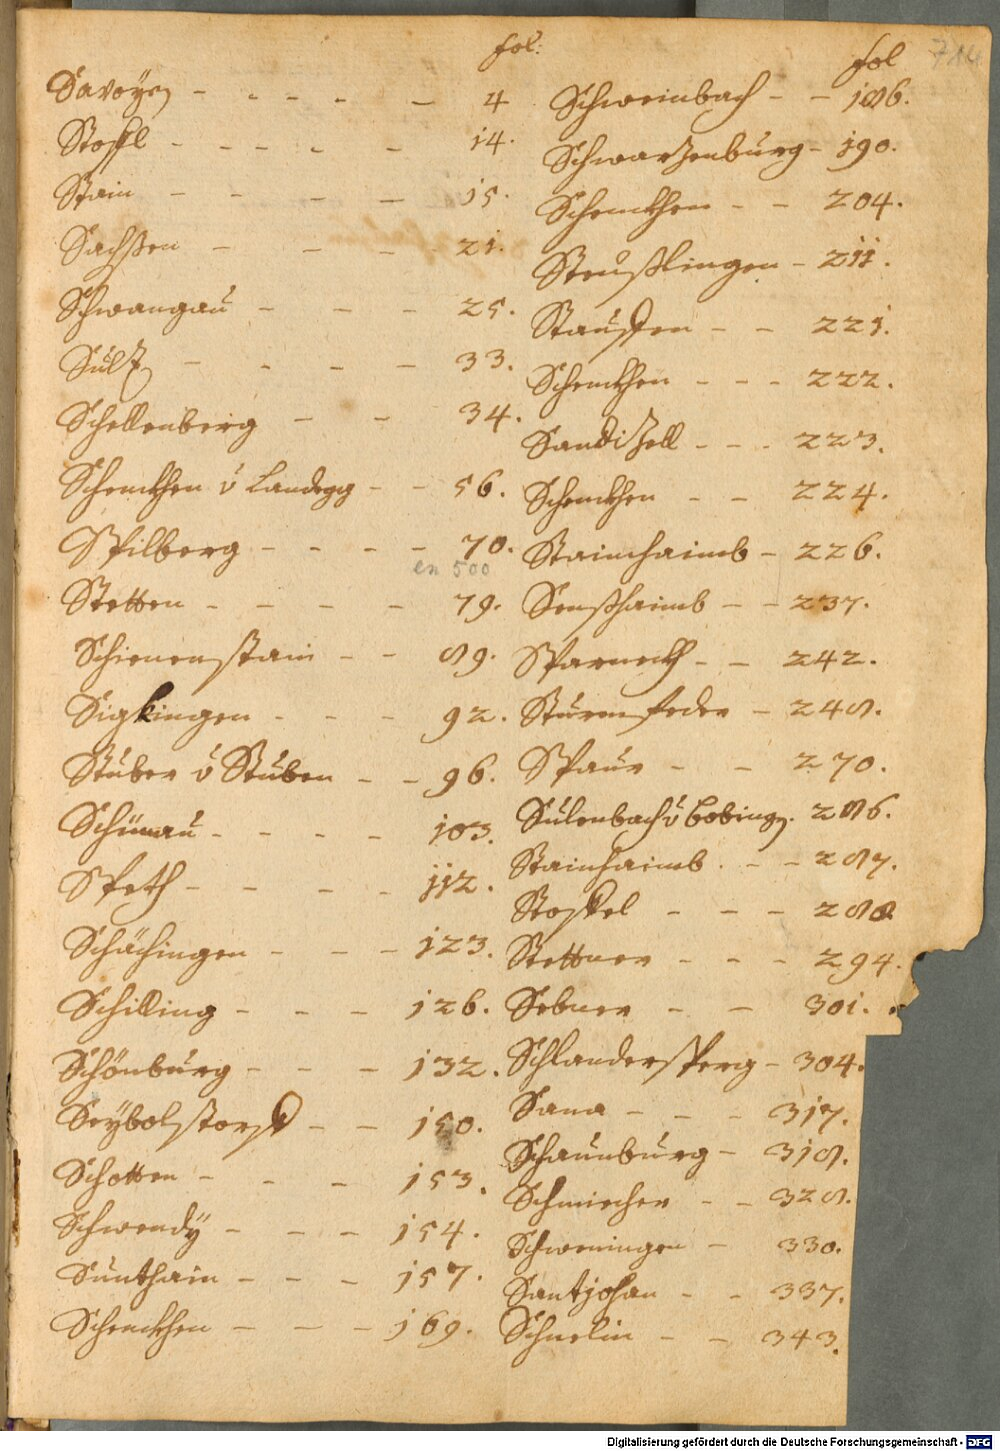 fol:
Savoyen - - - - - 4
Stoffl - - - - - 14.
Stain - - - - 15.
Sachßen - - - 21.
Schwangau - - - 25.
Sultz - - - - 33.
Schellenberg - - 34.
Schenckhen v̈ Landegg - - 56.
Spilberg - - - - 70.
en 500
Stetten - - - - 79.
Schienenstain - - 89.
Sigkingen - - - 92.
Stuber v̈ Stuben - - 96.
Schinau - - - - 103.
Speth - - - - 112.
Schächingen - - - 123.
Schilling - - - 126.
Schönburg - - - 132.
Seybolstorff - - 150.
Schotten - - - 153.
Schwendÿ - - - 154.
Sunthain - - - 157.
Schenckhen - - - 169.
fol
714
Schweinbach - - 186.
Schwarzenburg - 190.
Schenckhen - - 204.
Steußlingen - 211.
Stauffen - - 221.
Schenckhen - - - 222.
Sandizell - - - 223.
Schenckhen - - 224.
Stainhaimb - 226.
Senßhaimb - - 237.
Sparneckh - - 242.
Sturmfeder - 248.
Spaur - - 270.
Sulenbach v̈ Bobingen. 286.
Stainhaimb - - - 287.
Stoffel - - - 288
Stettner - - - 294.
Sebner - - 301.
Schlandersperg - 304.
Sana - - - 317.
Schaunburg - 318.
Schmiecher - - 328.
Schweningen - 330.
Santjohan - - 337.
Schnelin - - 343.
Digitalisierung gefördert durch die Deutsche Forschungsgemeinschaft - DFG